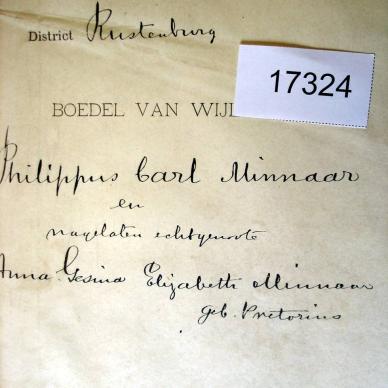 District Rustenburg
17324
BOEDEL VAN WIJL
Philippus Carl Minnaar
en
nagelaten echtgenoote
Anna Gesina Elizabeth Minnaar
geb. Pretorius